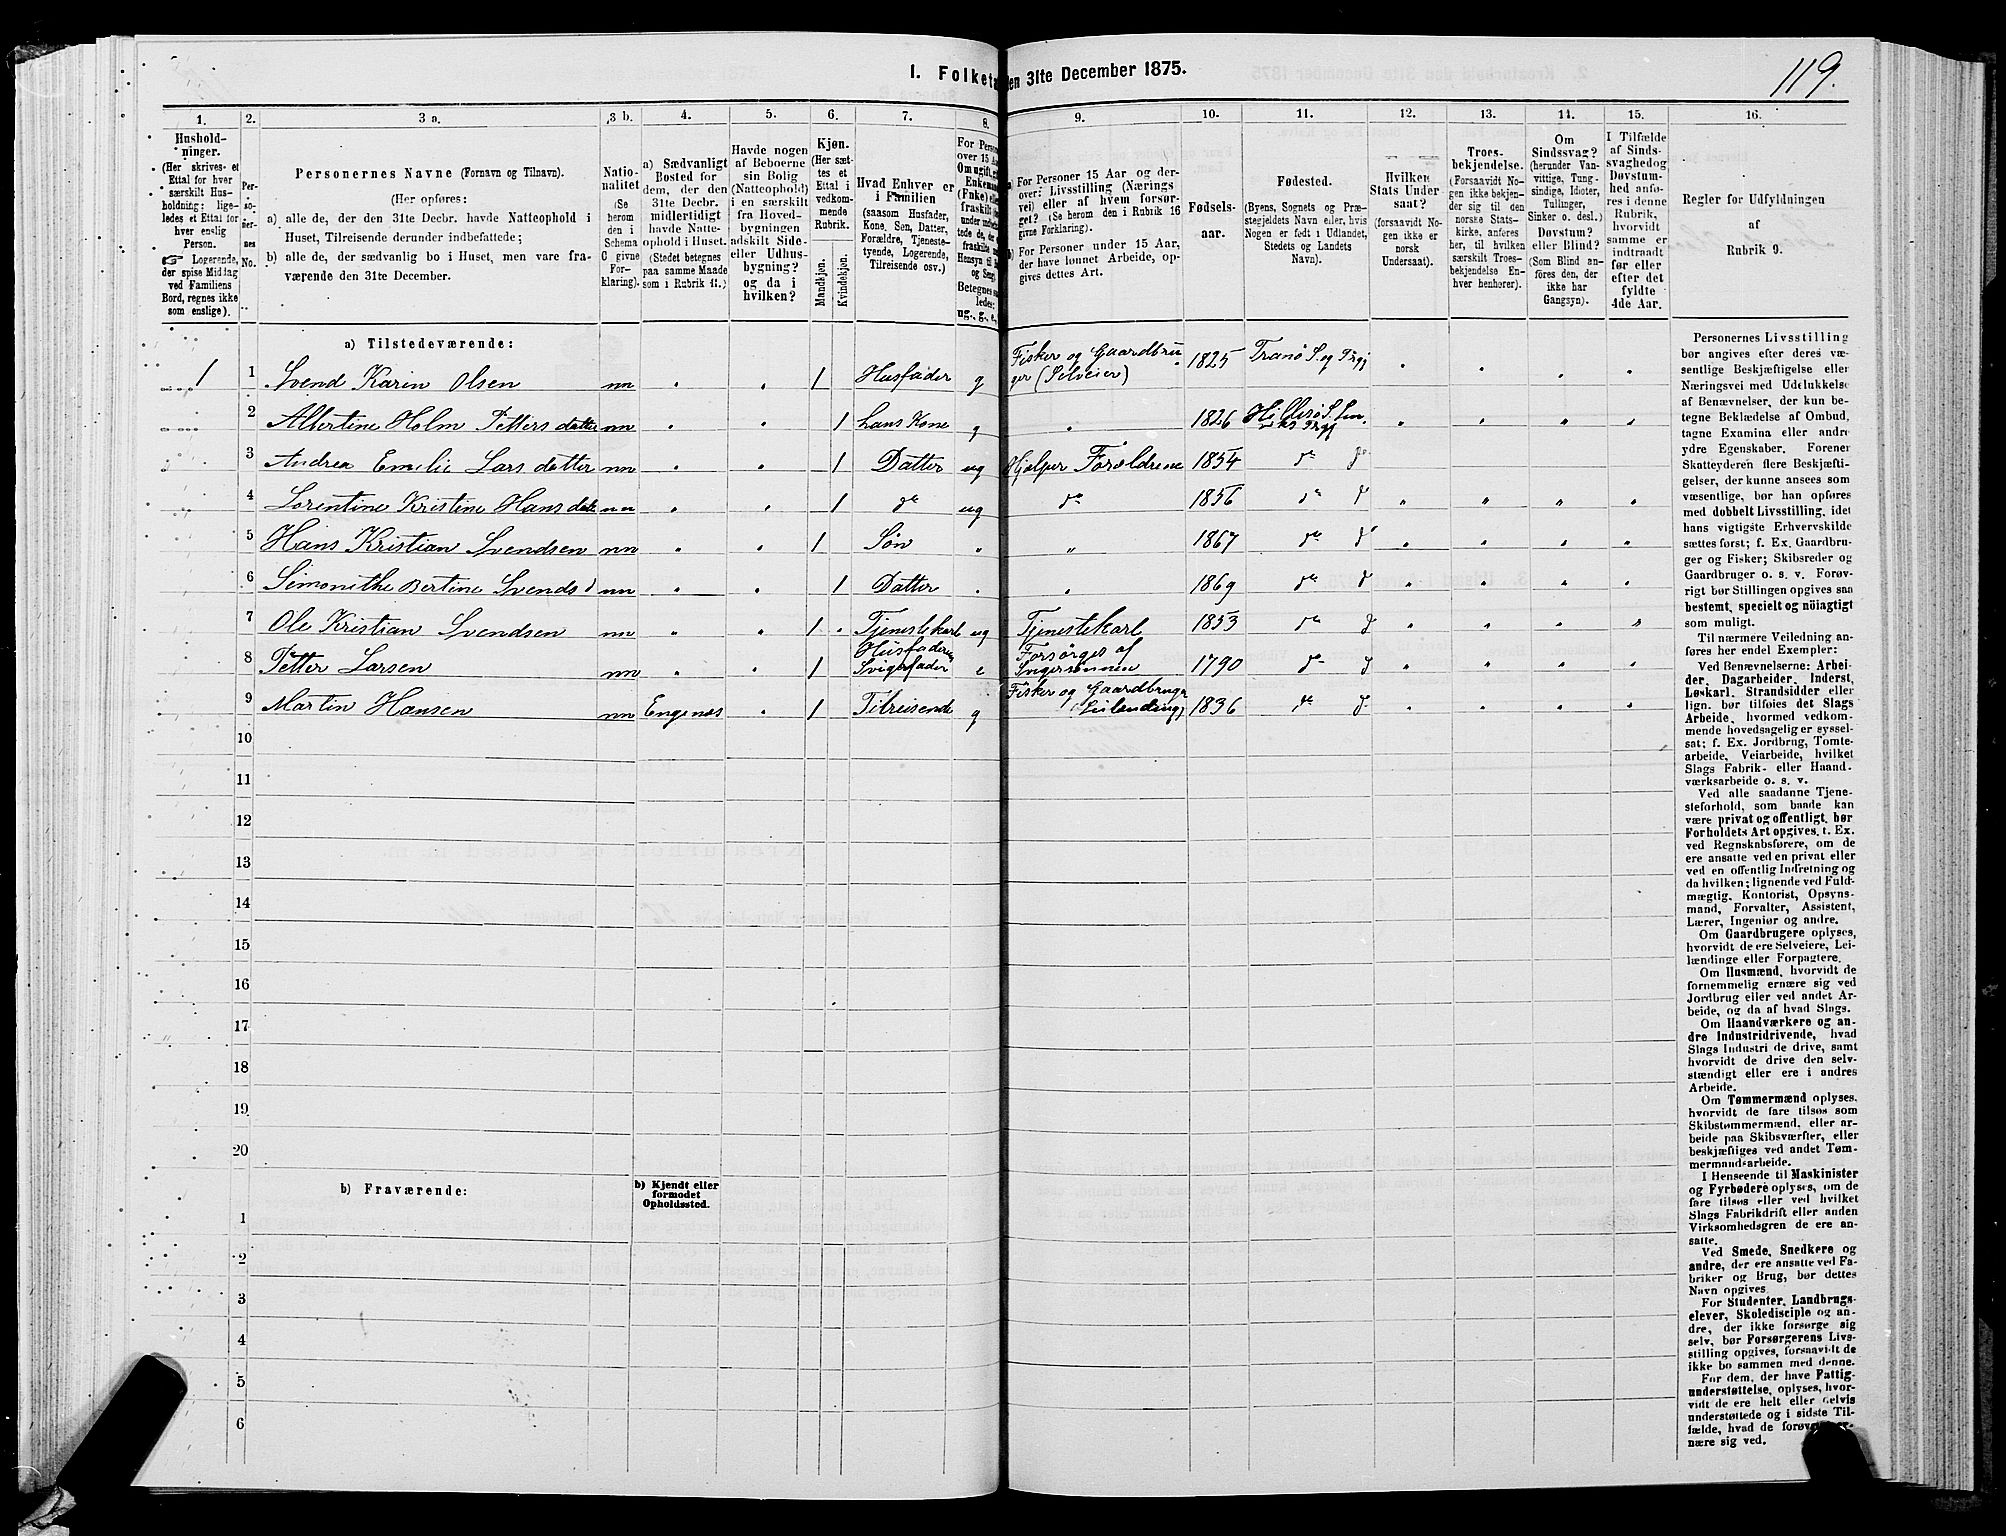 119.
1. Folketæ
en 31te December 1875.
1.
2.
3 a.
3 b.
4.
5.
6.
7.
8.
9.
10.
11.
12.
13.
14.
15.
16.
Hushold-
ninger.
(Her skrives et
Ettal for hver
særskilt Hus-
holdning; lige-
ledes et Ettal for
hver enslig
Person.
☞ Logerende,
der spise Middag
ved Familiens
Bord, regnes ikke
som enslige).
Per-
so-
ner-
nes
No.
Personernes Navne (Fornavn og Tilnavn).
(Her opføres:
a) alle de, der den 31te Decbr. havde Natteophold i
Huset, Tilreisende derunder indbefattede;
b) alle de, der sædvanlig bo i Huset, men vare fra-
værende den 31te December.
Natio-
nalitet
(Se
herom
den i
Schema
C givne
For-
klaring).
a) Sædvanligt
Bosted for
dem, der den
31te Decbr.
midlertidigt
havde Natte-
ophold i Huset.
(Stedet betegnes
paa samme Maade
som i Rubrik 11.)
Havde nogen
af Beboerne
sin Bolig
(Natteophold)
i en særskilt
fra Hoved-
bygningen
adskilt Side-
eller Udhus-
bygning?
og da i
hvilken?
Kjøn.
(Her sæt-
tes et
Ettal i
vedkom-
mende
Rubrik.
Mandkjøn.
Kvindekjøn.
Hvad Enhver er
i Familien
(saasom Husfader,
Kone, Søn, Datter,
Forældre, Tjeneste-
tyende, Logerende,
Tilreisende osv.)
For Person
over 15 Aa
Om ugift, g
Enkema
(Fnke) elle
fraskilt
under
tede de,
Hensyn til
og Seng
Betegnes
ledes:
ug., g., e.,
a) For Personer 15 Aar og der-
over: Livsstilling (Nærings
vei) eller af hvem forsør-
get? (Se herom den i Rubrik 16
givne Forklaring).
b) For Personer under 15 Aar,
der have lønnet Arbeide, op-
gives dettes Art.
Fødsels-
aar.
Fødested.
(Byens, Sognets og Præ-
stegjeldets Navn eller, hvis
Nogen er født i Udlandet,
Stedets og Landets
Navn).
Hvilken
Stats Under
saat?
(forsaavidt No-
gen ikke er
norsk
Undersaat).
Troes-
bekjendelse.
(Forsaavidt No-
gen ikke bekjen-
der sig til den
norske Stats-
kirke, anføres
her, til hvilken
særskilt Troes-
bekjendelse En-
hver henhører).
Om
Sindssvag?
(herunder Van-
vittige, Tung-
sindige, Idioter,
Tullinger,
Sinker o. desl.)
Døvstum?
eller Blind?
(Som Blind an-
føres den, der
ikke har
Gangsyn).
I Tilfælde
af Sinds-
svaghed og
Døvstum-
hed anfø-
res i denne
Rubrik,
hvorvidt
samme er
indtraadt
før eller
efter det
fyldte
4de Aar.
Regler for Udfyldningen
af
Rubrik 9.
a) Tilstedeværende:
1 1 Svend Karin Olsen nn " " 1 Husfader g Fisker og Gaardbru-
ger (Selveier) 1825 Tranø S. og Prgj " " " "
2 Albertine Holm Petters datter nn " " 1 hans Kone g " 1826 Hillesø S. Len-
viks Prgj " " " "
3 Andrea Emelie Lars datter nn " " 1 Datter ug Hjælper Forældrene 1854 do do
4 Lorentine Kristine Hans datt nn " " 1 do ug do 1856 do do " " " "
5 Hans Kristian Svendsen nn " " 1 Søn " " 1867 do do " " " "
6 Simonithe Bertine Svends d nn " " 1 Datter " " 1869 do do " " " "
7 Ole Kristian Svendsen nn " " 1 " Tjenestekarl ug Tjenestekarl 1853 do do " " " "
8 Petter Larsen nn " " 1 Husfaderens
Svigerfader e Forsørges af
Svigersønnen 1790 do do " " " "
9 Martin Hansen nn Engenes " 1 Tilreisende g Fisker og Gaardbruger
(Leilænding) 1836 do do " " " "
10
11
12
13
14
15
16
17
18
19
20
b) Fraværende:
b) Kjendt eller
formodet
Opholdssted.
1
2
3
4
5
6
Personernes Livsstilling
bør angives efter deres væ-
sentlige Beskjæftigelse eller
Næringsvei med Udelukkelse
af Benævnelser, der kun be-
tegne Beklædelse af Ombud,
tagne Examina eller andre
ydre Egenskaber. Forener
Skatteyderen flere Beskjæfti-
gelser, der kunne ansees som
væsentlige, bør han opføres
med dobbelt Livsstilling, idet
hans vigtigste Erhvervskilde
sættes først; f. Ex. Gaardbru-
ger og Fisker; Skibsreder og
Gaardbruger o. s. v. Forøv-
rigt bør Stillingen opgives saa
bestemt, specielt og nöiagtigt
som muligt.
Til nærmere Veiledning an-
føres her endel Exempler:
Ved Benævnelserne: Arbei-
der, Dagarbeider, Inderst,
Løskarl, Strandsidder eller
lign. bør tilføies det Slags
Arbeide, hvormed vedkom-
mende hovedsagelig er syssel-
sat; f. Ex. Jordbrug, Tomte-
arbeide, Veiarbeide, hvilket
Slags Fabrik- eller Haand-
værksarbeide o. s. v.
Ved alle saadanne Tjene-
steforhold, som baade kan
være privat og offentligt, bør
Forholdets Art opgives, t. Ex.
ved Regnskabsførere, om de
ere ansatte ved en privat eller
ved en offentlig Indretning og
da hvilken; lignende ved Fuld-
mægtig, Kontorist, Opsyns-
mand, Forvalter, Assistent,
Lærer, Ingeniør og andre.
Om Gaardbrugere oplyses,
hvorvidt de ere Selveiere, Lei-
lændinge eller Forpagtere.
Om Husmænd, hvorvidt de
fornemmelig ernære sig ved
Jordbrug eller ved andet Ar-
beide, og da af hvad Slags.
Om Haandværkere og an-
dre Industridrivende, hvad
Slags Industri de drive, samt
hvorvidt de drive den selv-
stændigt eller ere i andres
Arbeide.
Om Tømmermænd oplyses,
hvorvidt de fare tilsøs som
Skibstømmermænd, eller ar-
beide paa Skibsværfter, eller
beskjæftiges ved andet Tøm-
mermandsarbeide.
I Henseende til Maskinister
og Fyrbødere oplyses, om de
fare tilsøs eller ved hvilket
Slags Fabrikdrift eller anden
Virksomhedsgren de ere an-
satte.
Ved Smede, Snedkere og
andre, der ere ansatte ved Fa-
briker og Brug, bør dettes
Navn opgives.
For Studenter, Landbrugs-
elever, Skoledisciple og an-
dre, der ikke forsørge sig
selv, bør Forsørgerens Livs-
stilling opgives, forsaavidt de
ikke bo sammen med denne.
For dem, der have Fattig-
understøttelse, oplyses, hvor-
vidt de ere helt eller delvis
understøttede og i sidste Til-
fælde, hvad de forøvrigt er-
nære sig ved.